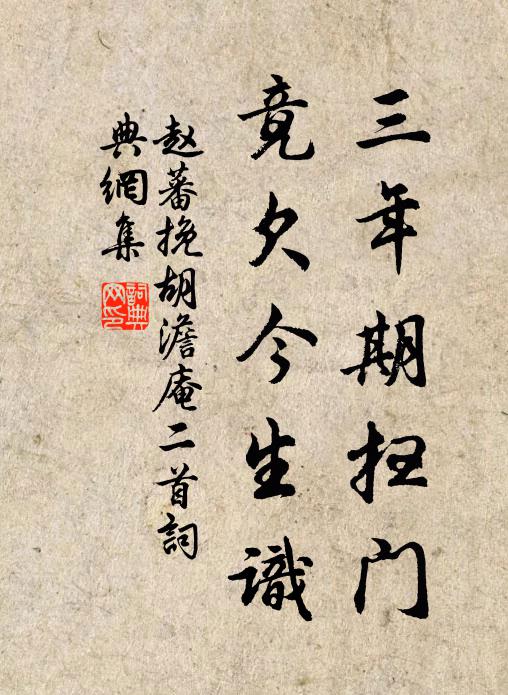 三年期扫门
竟欠今生識
赵蕃挽胡澹庵二首詞
典網集
詞典网印